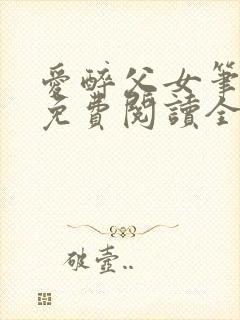 愛醉父女筆
免費閱讀全
破壺..